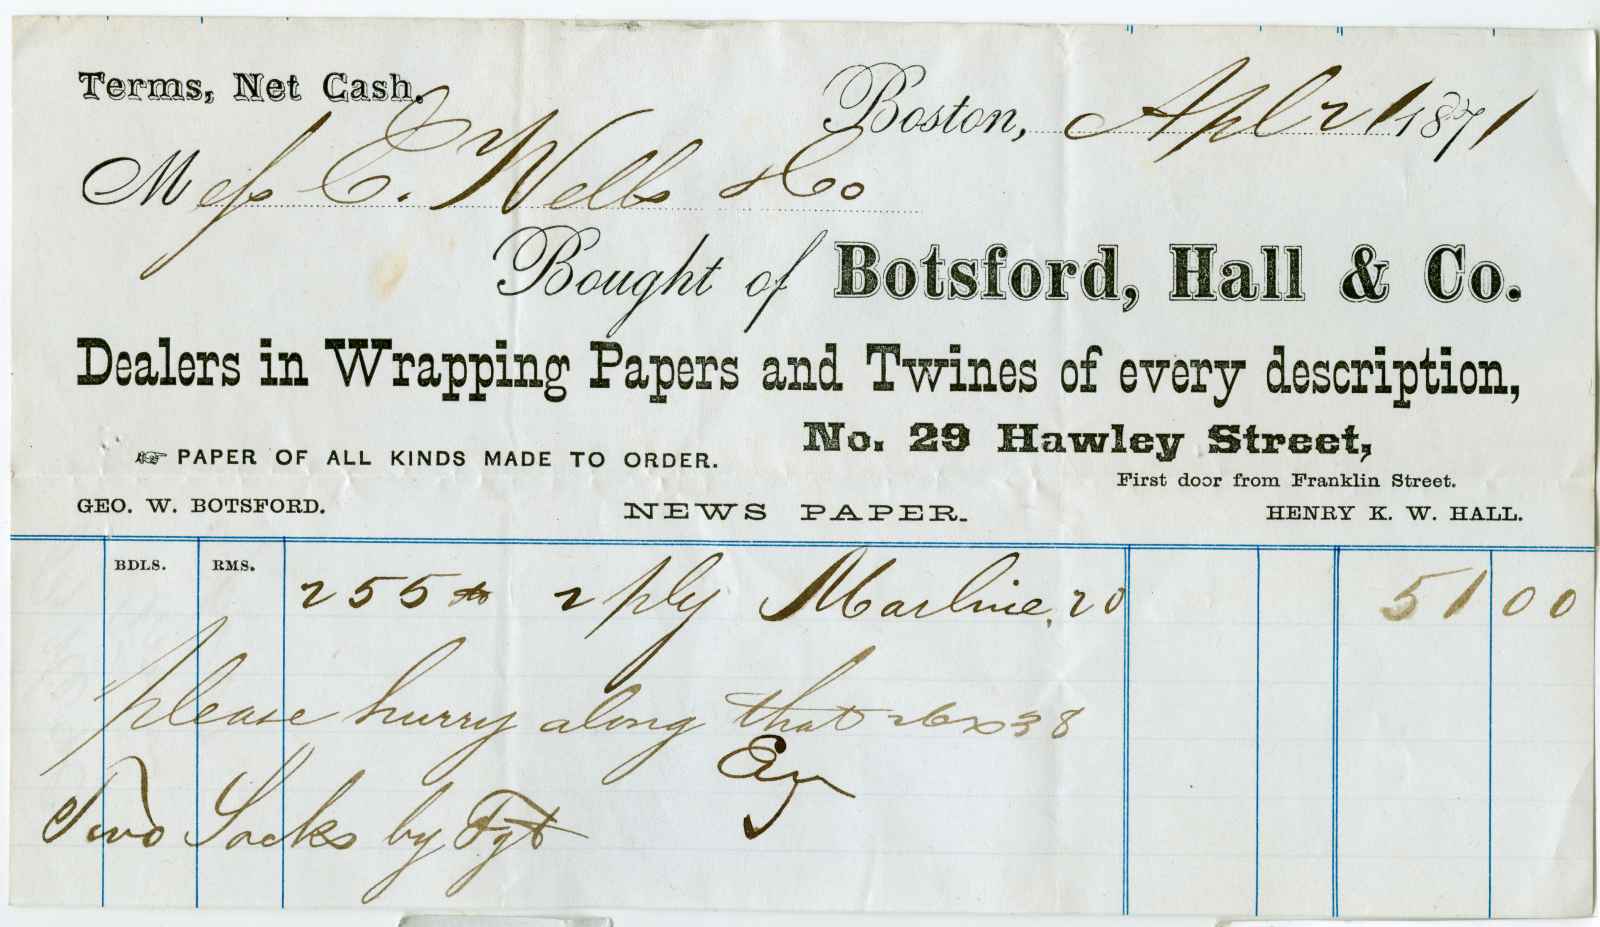 Terms, Net Cash.
Boston, Apl 21 1871
Mess C. Wells & Co
Bought of Botsford, Hall & Co.
Dealers in Wrapping Papers and Twines of every description,
No. 29 Hawley Street,
☞ PAPER OF ALL KINDS MADE TO ORDER.
First door from Franklin Street.
GEO. W. BOTSFORD. NEWS PAPER. HENRY K. W. HALL.
BDLS. RMS.
255 lb 2 ply Marline .20 51 00
please hurry along that 26x38
Two Sacks by Fgt